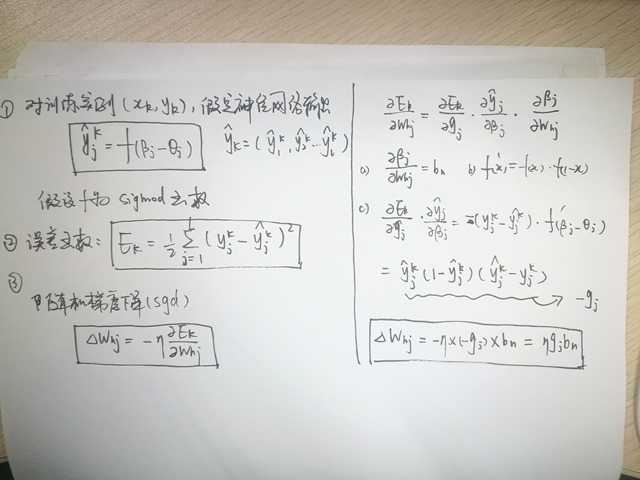 ① 对训练实例 (xk, yk), 假定神经网络输出
ŷⱼᵏ = f(βⱼ - θⱼ)   ŷk = (ŷ₁ᵏ, ŷ₂ᵏ ... ŷₗᵏ)
假设f为 sigmod 函数
② 误差函数: Ek = 1/2 Σⱼ₌₁ˡ (yⱼᵏ - ŷⱼᵏ)²
③
随机梯度下降 (sgd)
△Whj = -η ∂Ek/∂Whj
∂Ek/∂Whj = ∂Ek/∂ŷj · ∂ŷj/∂βj · ∂βj/∂Whj
a) ∂βj/∂Whj = bh   b) f'(x) = f(x) · f(1-x)
c) ∂Ek/∂ŷj · ∂ŷj/∂βj = -(yⱼᵏ - ŷⱼᵏ) · f'(βj - θj)
= ŷⱼᵏ (1 - ŷⱼᵏ)(ŷⱼᵏ - yⱼᵏ)
→ -gj
△Whj = -η × (-gj) × bh = ηgjbh